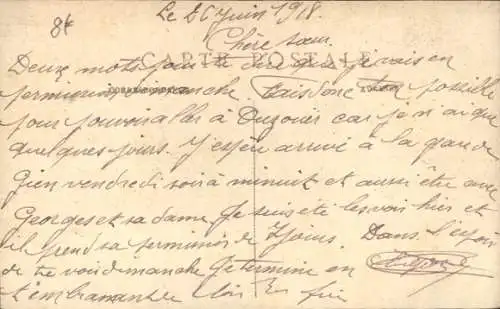 8f
Le 26 Juin 1918.
Chère sœur
CARTE POSTALE
Deux mots pour te dire que je vais en
permission dimanche Fais donc ton possible
pour pouvoir aller à Ouzouer car je n'ai que
quelques jours. J'espère arrivé à la gare de
Gien vendredi soir à minuit et aussi être avec
Georges et sa dame. Je suis été les voir hier et
il prend sa permission de 7 jours. Dans l'espoir
de te voir dimanche je termine en
t'embrassant de loin Ton frère